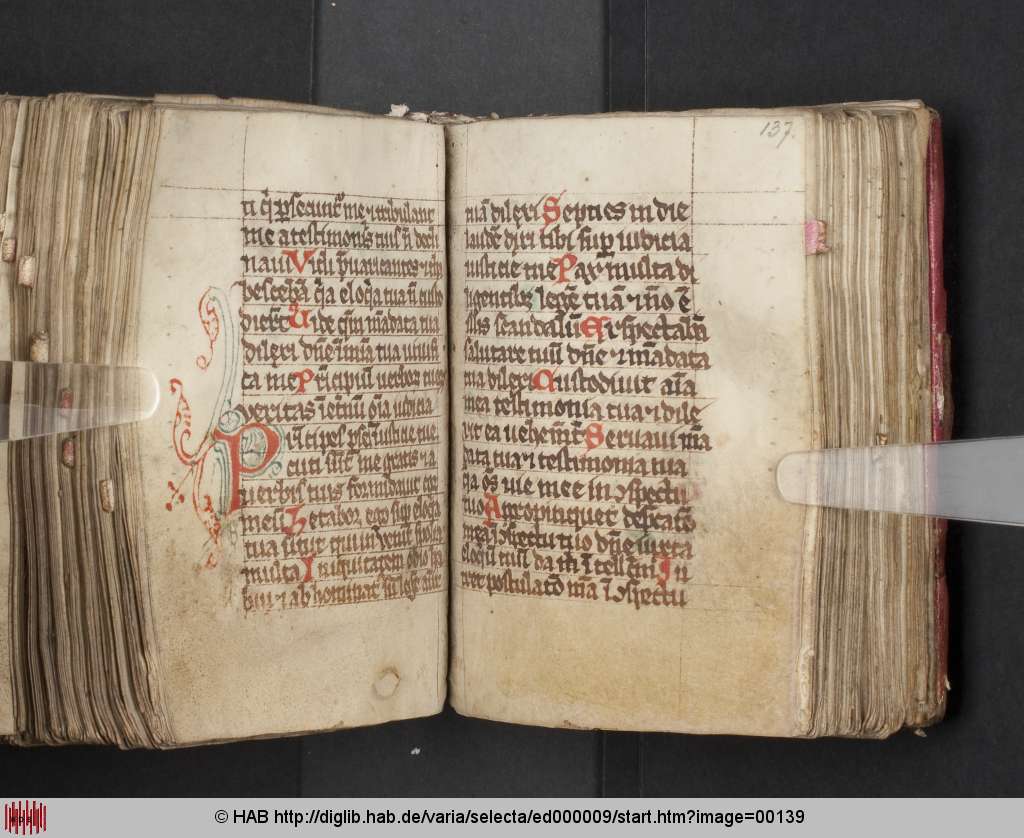 ti q̓ ꝑsecunt᷑ me ⁊ tribulant
me a testimoniis tuis n̄ decli
naui Vidi p̄uaricantes ⁊ tabe
bescebā q̓a eloq̓a tua n̄ custo
dierūt Uide qm̄ mādata tua
dilexi dn̄e ī mīa tua uiuifi
ca me Pͥncipiū uerboꝝ tuoꝝ
ueritas īet̓nū om̄ia iudicia
Pͥncipes ꝑsec̄ iusticie tue
cuti sūt me gratis ⁊ a
uerbis tuis formidauit cor
meū Letaboꝛ ego sup̄ eloq̓a
tua sicut qui inuenit spolia
multa Iniquitatem odio ha
bui ⁊ abhominat᷑ sū legē aūt
137.
tuā dilexi Septies in die
laudē dixi tibi sup̄ iudicia
iusticie tue Pax multa di
ligentibꝫ legē tuā ⁊ nō ē
illis scandalū Exspectabā
salutare tuū dn̄e ⁊ mādata
tua dilexi Custodiuit aīa
mea testimonia tua ⁊ dile
xit ea uehemēt̓ Seruaui mā
data tua ⁊ testimonia tua
q̓a om̄s uie mee in ꝯspectu
tuo Apropinquet dep̄catō
mea ī ꝯspectu tuo dn̄e iuxta
eloquiū tuū da m̄ ītellectū In
tret postulatō mea ī ꝯspectu
© HAB http://diglib.hab.de/varia/selecta/ed000009/start.htm?image=00139